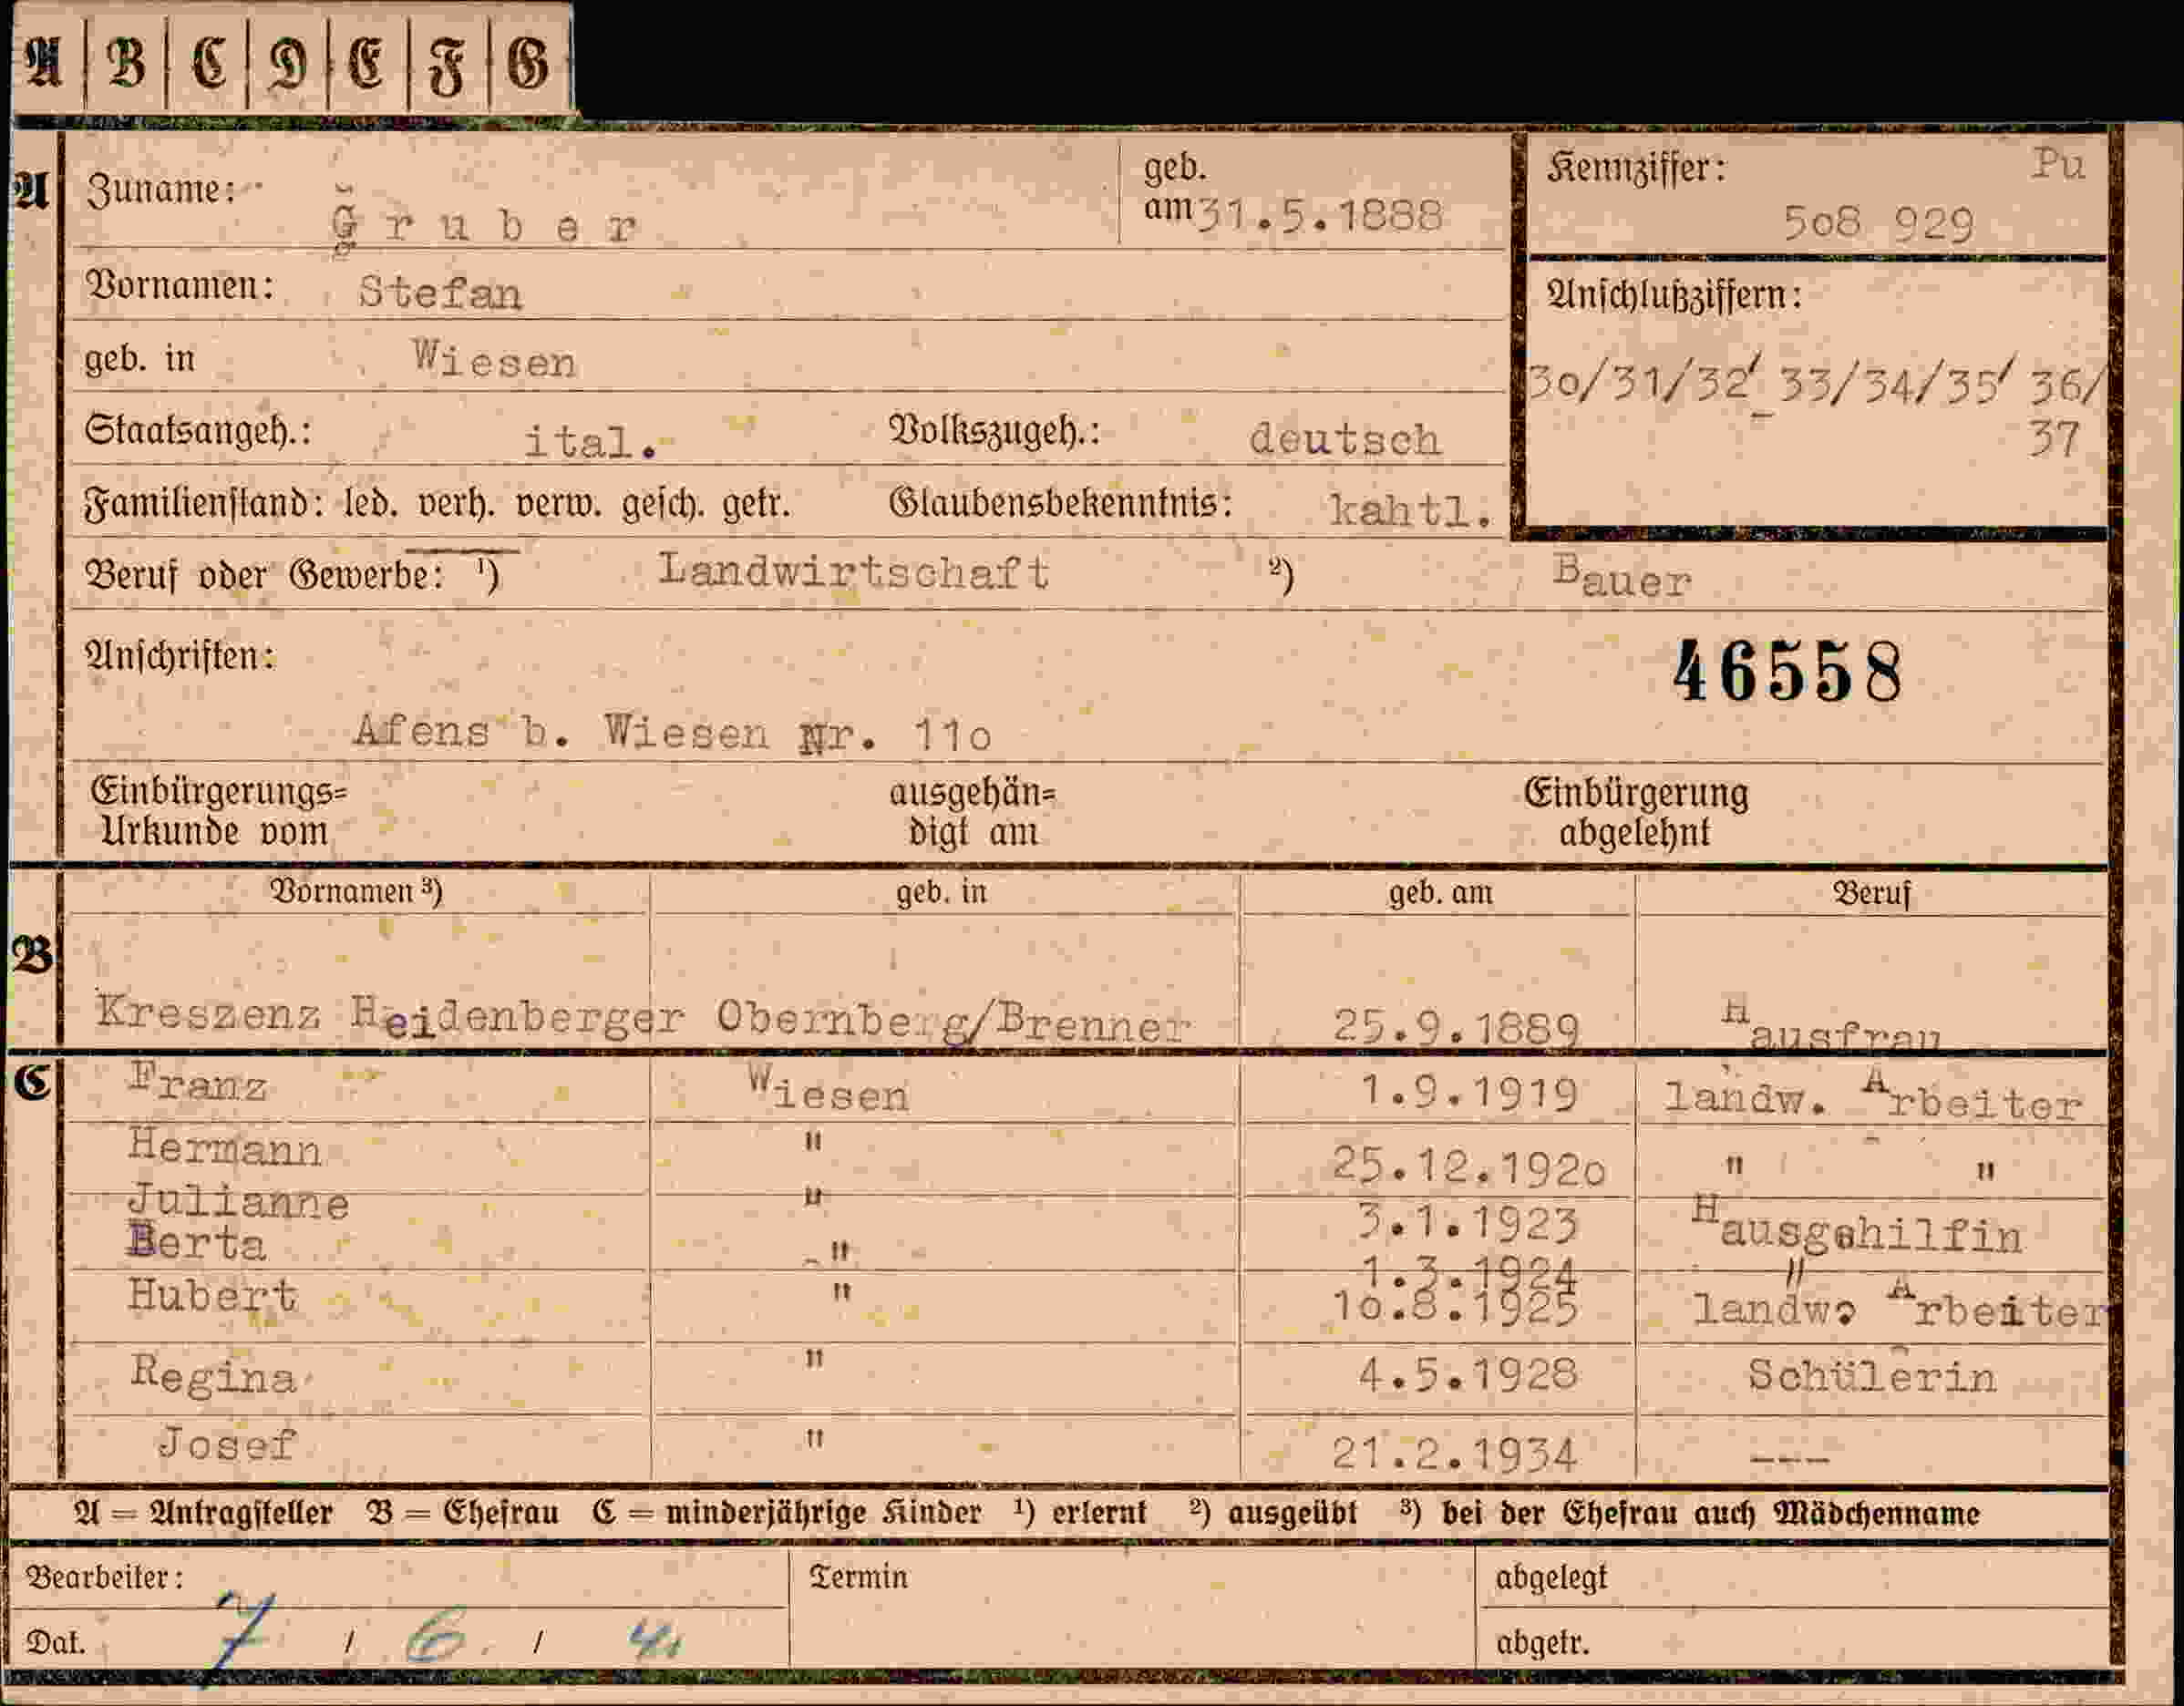 A | B | C | D | E | F | G
A Zuname: Gruber geb. am 31.5.1888 Kennziffer: Pu
508 929
Vornamen: Stefan Anschlußziffern:
geb. in Wiesen
30/31/32/ 33/34/35/ 36/
37
Staatsangeh.: ital. Volkszugeh.: deutsch
Familienstand: led. verh. verw. gesch. getr. Glaubensbekenntnis: kahtl.
Beruf oder Gewerbe: ¹) Landwirtschaft ²) Bauer
Anschriften: 46558
Afens b. Wiesen Nr. 11o
Einbürgerungs= ausgehän= Einbürgerung
Urkunde vom digt am abgelehnt
Vornamen ³) geb. in geb. am Beruf
B
Kreszenz Heidenberger Obernberg/Brenner 25.9.1889 Hausfrau
C Franz Wiesen 1.9.1919 landw. Arbeiter
Hermann " 25.12.192o " "
Julianne " 3.1.1923 Hausgehilfin
Berta " 1.3.1924 "
Hubert " 1o.8.1925 landw. Arbeiter
Regina " 4.5.1928 Schülerin
Josef " 21.2.1934 ---
A = Antragsteller B = Ehefrau C = minderjährige Kinder ¹) erlernt ²) ausgeübt ³) bei der Ehefrau auch Mädchenname
Bearbeiter: Termin abgelegt
Dat. 7 / 6. / 41 abgetr.